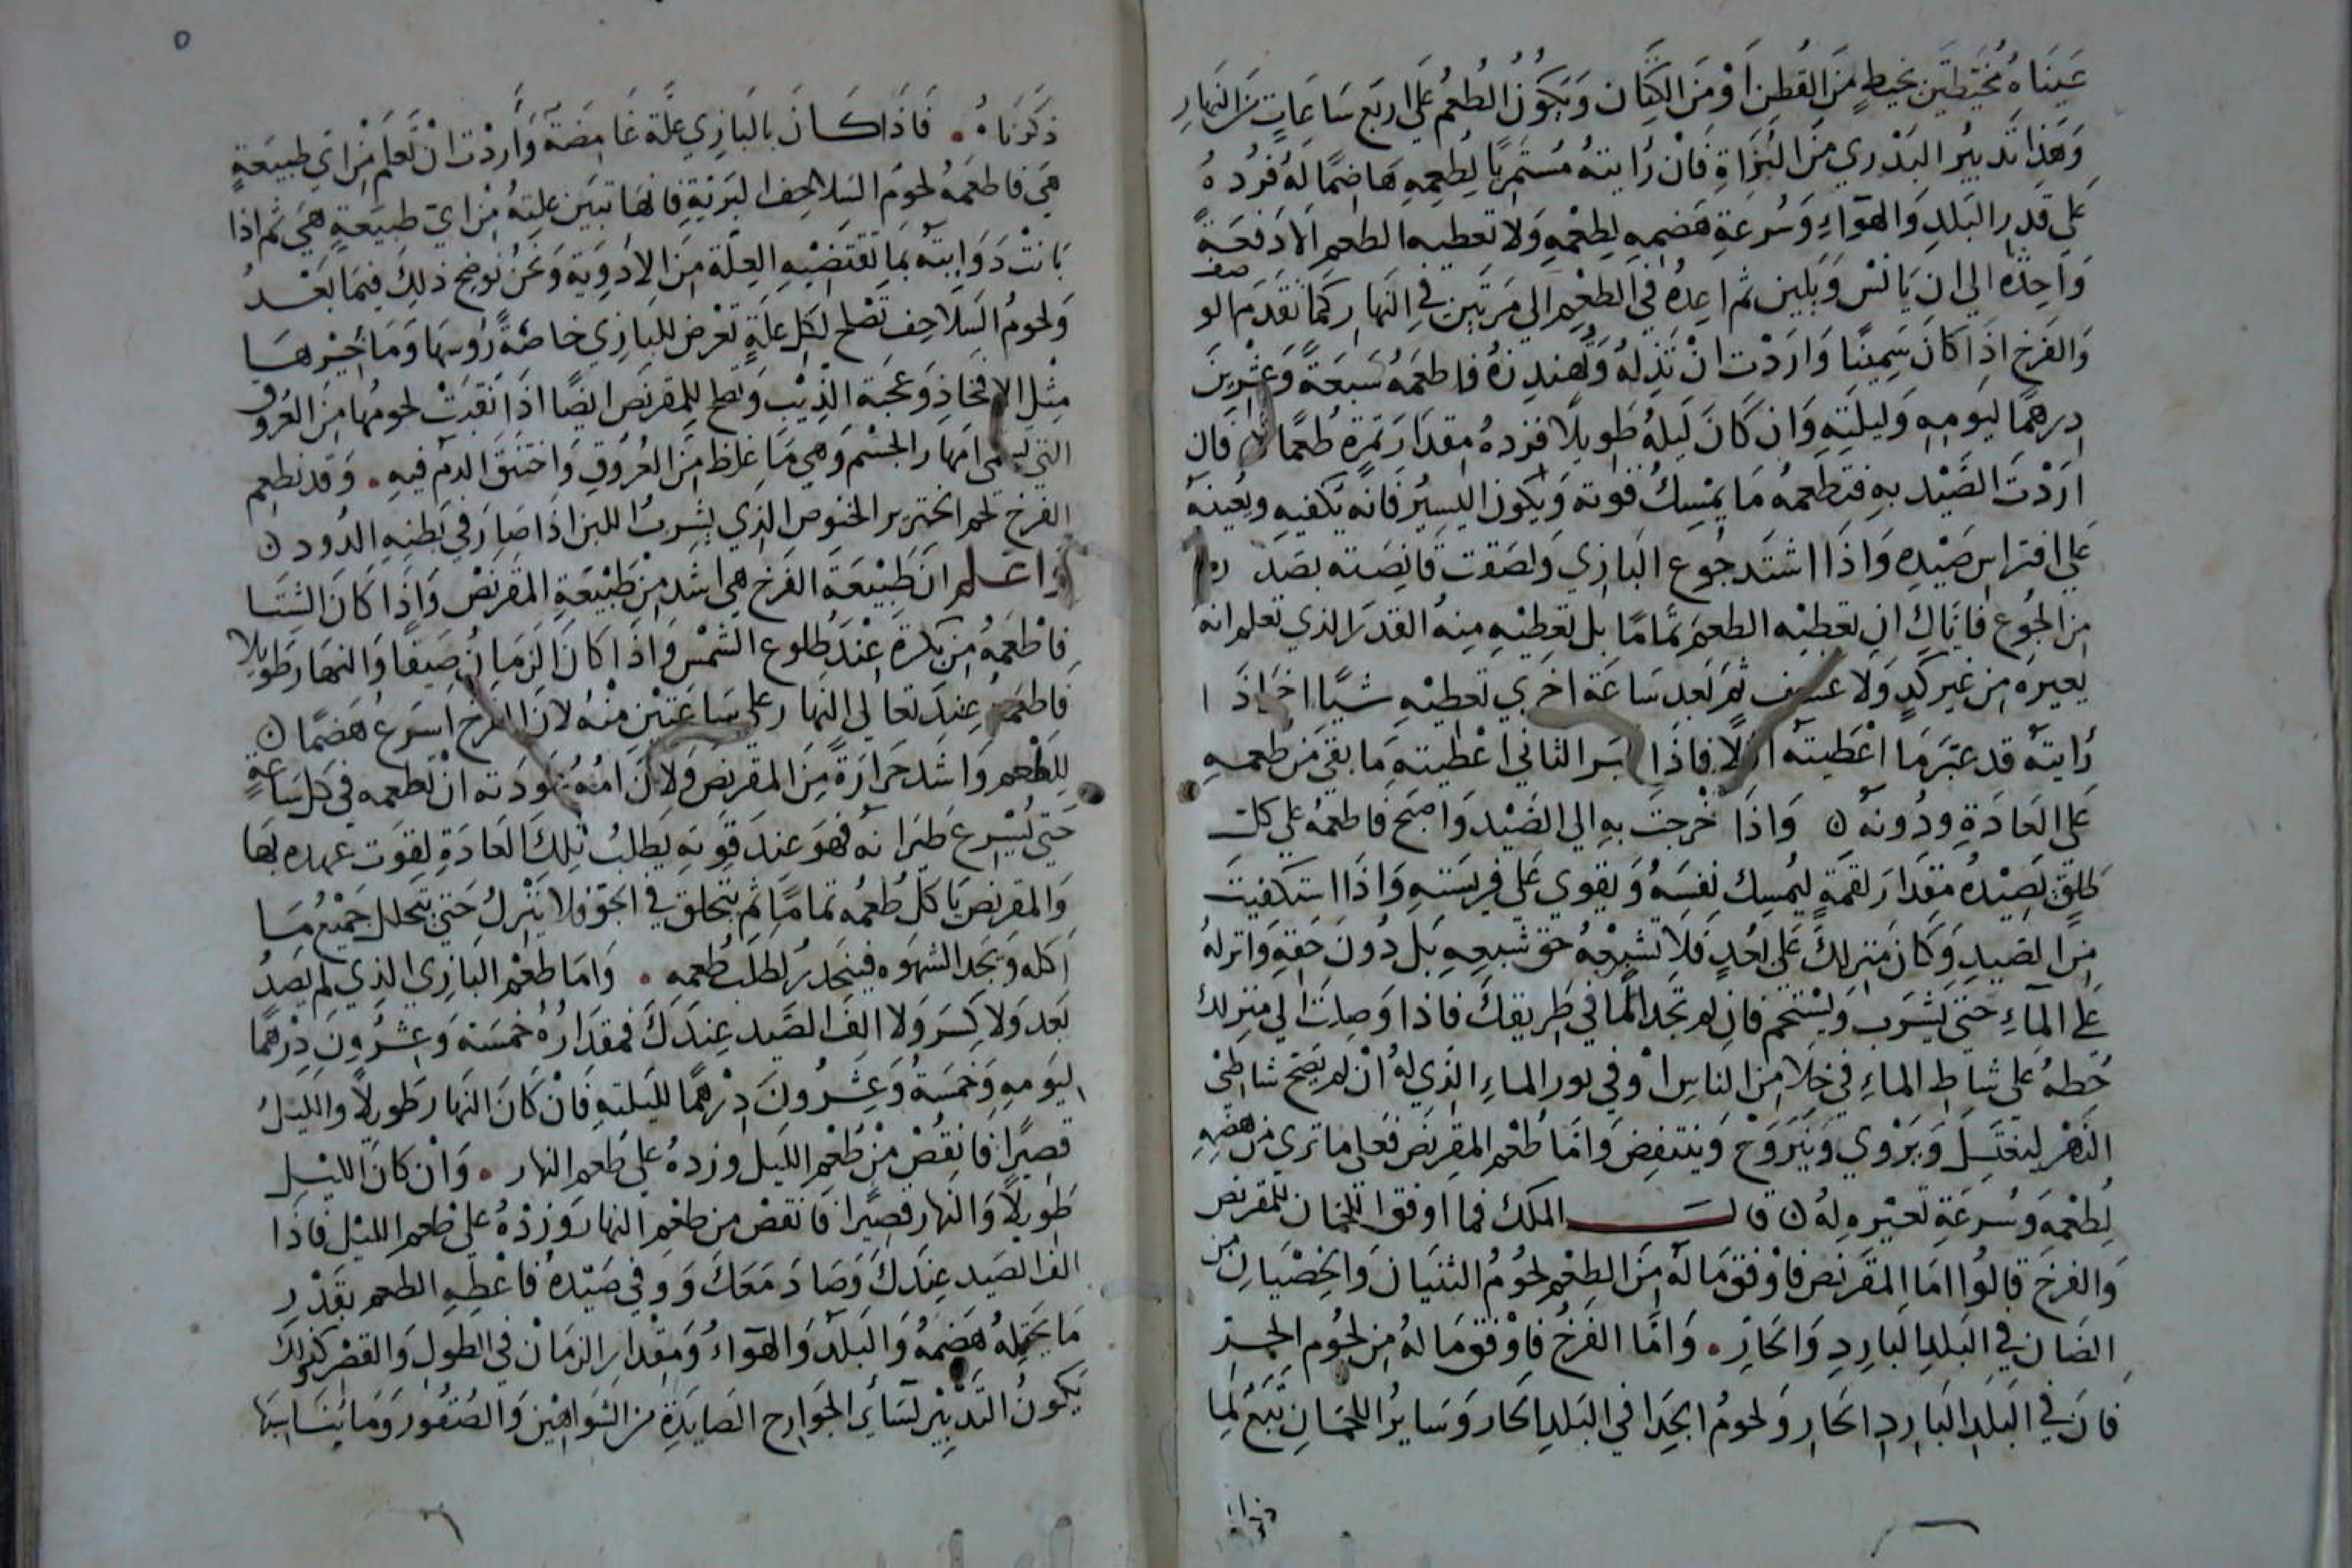 عَينَاهُ مُخَيَّطتَين بخيطٍ مِنَ القُطنِ اَوْ مِنَ الكتَّان وَيَكُونُ الطُعم عَلي اربَع سَاعَاتٍ مِنَ النهارِ
وَهَذا تَدبيرُ البَدْري مِنَ البُزَاةِ فَانْ رُايتهُ مُستمريًا لِطُعمِهِ هَاضِمًا لهُ فزدهُ
عَلي قدرِ البَلدِ وَالهوَآءِ وَسُرعَةِ هَضمِهِ لِطُعْمِهِ وَلا تعطيه الطعم الا دَفعَةً
وَاحِدَةً الي ان يَانسْ وَيَلين ثم اعِدهُ في الطُعم الي مَرتَين في النهار كما تقدم
وَالفَرخ اذَا كانَ سَمِينًا وَارَدْت انْ تذلهُ وَتُهندِزهُ فاطعمهُ سَبعَةً وَعِشْرينَ
درهمًا ليَومِهِ وَليلَتِهِ وَان كانَ ليلهُ طَوِيلًا فزدهُ مقدَارَ تمرة طُعمًا فان
ارَدْتَ الصَّيْد بهِ فتطعمهُ مَا يمْسِكُ قوته وَيَكون اليسيْر فانَّه يكفيهِ ويُعينهُ
عَلي افتراسِ صَيْدهِ وَاذَا اشتَد جوع البَازي وَلصَقت قانصَته بصَد
مِن الجُوع فايَّاكَ ان تعطيْه الطعمَ تمامًا بل تعطيْهِ مِنهُ القدَر الذي تعلم انه
يعبره من غَير كدٍ وَلا عسف ثمَ بَعدَ سَاعَة اخري تعطيْهِ شيًا اخَر اذَا
رُايتهُ قد عبَر مَا اعْطيتهُ اولًا فاذَا الثاني اعْطيته مَا بقيَ مِن طعمهِ
عَلي العَادَةِ ودُونه ن وَاذَا خَرجت بهِ الي الصَّيْد وَاصبَح فاطعمهُ علي كل
طلقٍ بَصِيْدهُ مقدَارَ لقمَةٍ ليُمسِك نفسَهُ وَيقوي عَلي فريسَتهِ وَاذَا استكفيت
مِنَ الصَيدِ وَكانَ منزلكَ عَلي بُعدٍ فلا تشبِعْهُ حق شبعِهِ بَل دُونَ حَقهِ وَانزلهُ
علي المآءِ حَتي يشرَب وَيَسْتحم فان لم تجد المَا في طريقكَ فاذا وَصلت الي منزلك
حُطهُ عَلي شاطِ الماءِ في خلا من الناسِ اوْ في نور الماءِ الذي لهُ انْ لم يَصح شاطئ
النَهْر ليَغتسلَ وَيَرْوي وَيَتَروَحْ وَينتفِضَ وَامَا طُعم المقرنص فعَلي ما تري من هضمِهِ
لِطُعْمِهِ وَسُرعَةِ تعبْيره لهُ ن قالَ الملك فما اوفق اللحمان للمقرنص
وَالفرخ قالُوا امَا المقرَنص فاوْفق مَا لهُ مِنَ الطعْم لحوُمُ الثنيَان وَالخِصْيَانِ مِن
الضان في البَلدِ البَاردِ وَالحَارِ. وَامَّا الفَرخُ فاوْفق مَا لهُ مِن لحُومِ الجدَ
فانَ في البَلدِ البَاردِ الحَارِ وَلحومُ الجدَا في البَلدِ الحَار وَسَايرُ اللحمَانِ تَبَعٌ لمِا
ذكرنَا
٥
ذكَرنَاهُ. فَاذَا كَانَ بالبَازي علّة غامِضة وَارَدْت انْ تعلَم مِنْ اي طبيعَةٍ
هيَ فاطعمهُ لحومَ السَلاحِف البَريَّةِ فانها تبيّن علتهُ مِن ايّ طبيعَةٍ هيَ ثم اذا
بَانتْ دَوَايتهُ بمَا تَقتضيْهِ العِلّة مِنَ الادْوِيَة وَنحنُ نُوضِحُ ذلِكَ فيمَا بَعْدُ
وَلحومُ السَلاحِف تصْلح لكل علةٍ تعْرض للبَازي خاصَّةً رُوسها وَمَا خيْرهَا
مِثْل الافخاذِ وَعجبَة الذنْب وَتصلح للمقرنص ايضًا اذَا نُقيَتْ لحومُها مِنَ العُروُق
التي تسمي امهار الجسْم وَهي مَا غلظ مِنَ العُرُوقِ وَاختنَق الدَم فيهِ. وَقد نطعم
الفَرخ لحم الخنزير الخنوص الذي يشرَبُ اللبن اذَا صَارَ في بَطنِهِ الدُود ن
وَاعلم انَ طَبيْعَة الفَرخ هي اشد مِنْ طَبْيَعَةِ المقرنصْ وَاذَا كانَ الشتَا
فاطْعمَهُ مِن بَكرة عِنْد طُلوع الشمْس وَاذَا كانَ الزَمَانُ صَيفًا وَالنهار طَوِيلا
فَاطعمهُ عِندَ تعَالي النهار علي سَاعَتيْنِ مِنْهُ لانَ الفرخ اسرَعُ هَضمًا ن
للطعم وَاشد حَرَارَةً مِنَ المقرنص وَلانَ امُهُ عَودَته انْ تطعمه في كل سَاعَةٍ
حَتي يُسْرع طيَرَانه فهوَ عِندَ قوته يَطلبُ تِلكَ العَادَةِ لقوّت عهده بهَا
وَالمقرنِص يَاكل طُعْمُه تَمامًا ثم يَتحَلق في الجَوّ فلا ينْزلُ حَتي يتحلل جمَيْعُ مَا
اكلهُ وَيَجد الشهوَه فينحَدر لِطلب طُعمه. وَامَا طعْم البَازي الذي لم يَصِدْ
بَعد وَلا كَسَر وَلا الفَ الصَّيد عِندَكَ فمقدَارُهُ خَمسَة وَعِشْرُون دِرْهمًا
ليَومِهِ وَخمَسَةُ وَعِشرُونَ دِرْهمًا لليلتِهِ فانْ كانَ النهار طَوِيلًا وَاللَيلُ
قصِيرًا فانقُصْ مِنْ طُعْمِ الليل وزدهُ علي طعم النهار. وَانْ كانَ الليْل
طَوِيلًا وَالنهار قصيرًا فانقصْ من طعْم النهار وَزدْهُ علي طعم الليْل فاذا
الفَ الصَيد عِندَكَ وَصَادَ مَعَكَ وَوَفي صَيْدهُ فاعْطِهِ الطعم بقَدْر
مَا يحتملهُ هَضمُهُ وَالبَلد وَالهوَآءُ وَمِقْدَار الزمَانْ في الطولِ وَالقصْر كذلك
يَكونُ التَدْبيْر لسَائرِ الجَوَارِح الصَايدَةِ من الشوَاهيْن وَالصُقُور وَمَا يُنَاسِبهَا